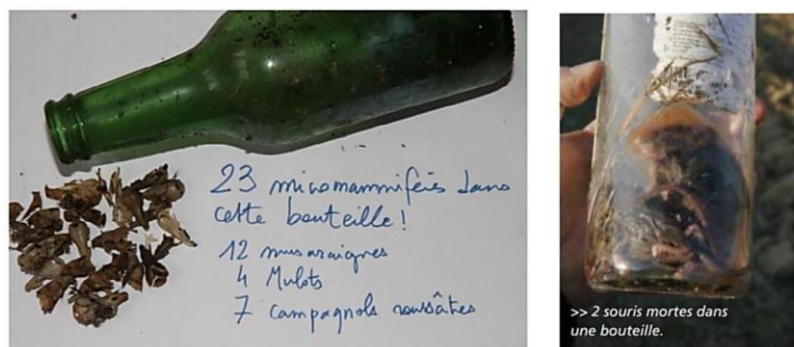 23 micromammifères dans
cette bouteille !
12 musaraignes
4 Mulots
7 campagnols roussâtres
>> 2 souris mortes dans
une bouteille.